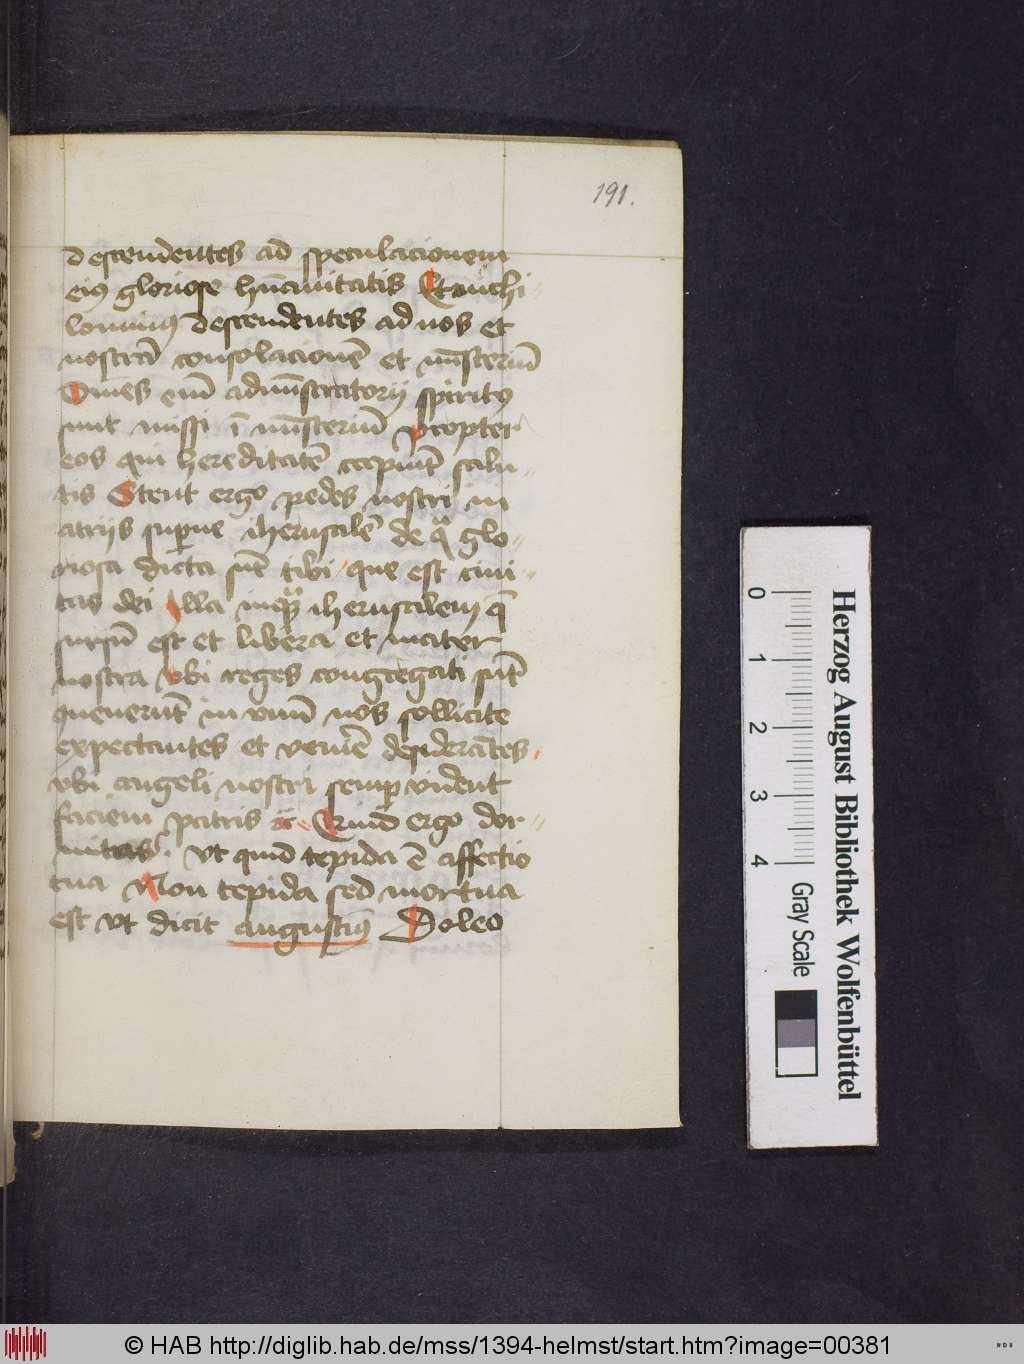 191.
descendentes ad speculacionem
eiꝯ gloriose hūanitatis Et nichi
lominꝯ descendentes ad nos et
nostrā consolacionē et mīsteriū
Omēs eīm admīstratorij spiritꝰ
sunt missi ī mīsteriū propter
eos qui hereditatē capiūt salu
tis Stent ergo pedes nostri in
atrijs superne iherusalē de qͣ glo
riosa dicta sūt tibi que est ciui
tas dei Illa inqͣ iherusalem q̄
sursū est et libera et mater
nostra vbi reges congregati sūt
ꝯuenerūt in vnū nos sollicite
expectantes et venīre desiderātes
vbi angeli nostri semꝑ vident
faciem patris ⁊c̄ Quid ergo dor
mitas. vt quid tepida ē affectio
tua Non tepida sed mortua
est vt dicit augustinꝯ Doleo
Herzog August Bibliothek Wolfenbüttel
0 1 2 3 4 Gray Scale
© HAB http://diglib.hab.de/mss/1394-helmst/start.htm?image=00381